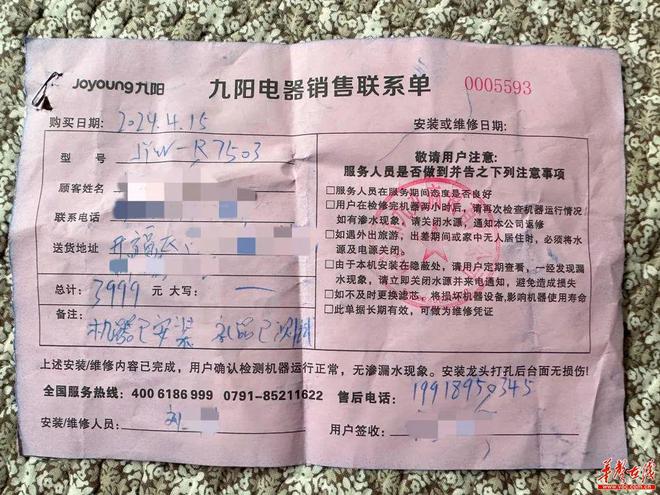 Joyoung九阳 九阳电器销售联系单 0005593
购买日期: 2024.4.15 安装或维修日期:
型 号 JYW-R7503
顾客姓名
联系电话
送货地址 开福区
总计: 3999 元 大写: 一
备注:
机器已安装 礼品已
敬请用户注意:
服务人员是否做到并告之下列注意事项
□服务人员在服务期间态度是否良好
□用户在检修完机器两小时后,请再次检查机器运行情况
如有渗水现象,请关闭水源,通知本公司返修
□如遇外出旅游,出差期间或家中无人居住时,必须将水
源及电源关闭。
□由于本机安装在隐蔽处,请用户定期查看,一经发现漏
水现象,请立即关闭水源并来电通知,避免造成损失
□如不及时更换滤芯,将损坏机器设备,影响机器使用寿命
□此单据长期有效,可做为维修凭证
上述安装/维修内容已完成,用户确认检测机器运行正常,无渗漏水现象。安装龙头打孔后台面无损伤!
全国服务热线: 400 6186 999 0791-85211622 售后电话: 19918950345
安装/维修人员: 刘 用户签收:
华声在线
www.voc.com.cn